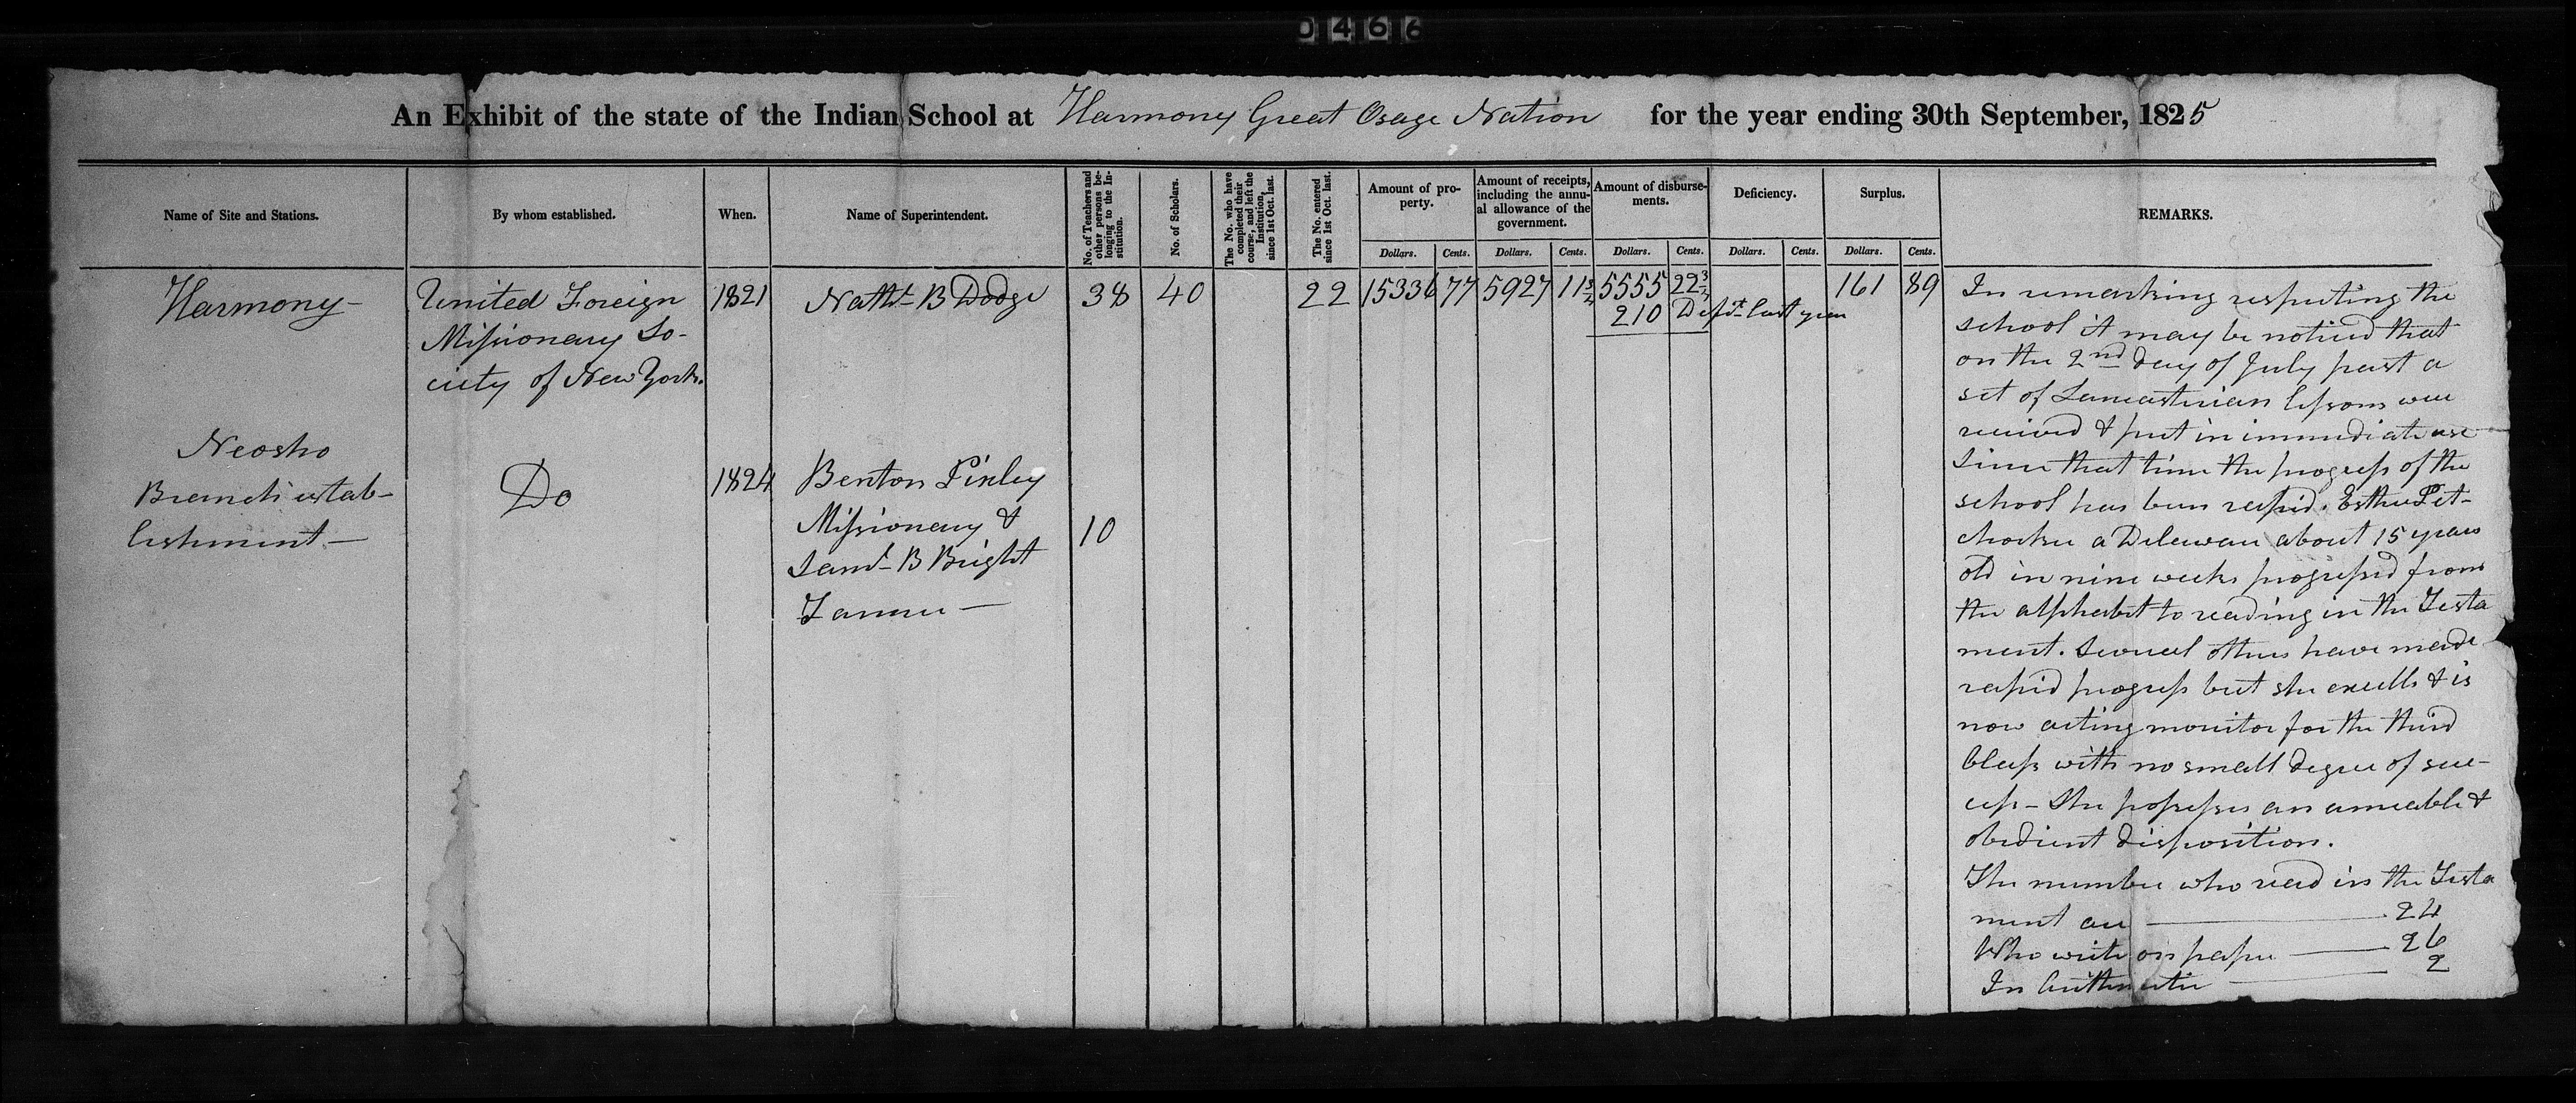 0466
An Exhibit of the state of the Indian School at Harmony Great Osage Nation for the year ending 30th September, 1825
Name of Site and Stations.
By whom established.
When.
Name of Superintendent.
No. of Teachers and other persons be-
longing to the In-
stitution.
No. of Scholars.
The No. who have
completed their
course, and left the
Institution,
since 1st Oct. last.
The No. entered
since 1st Oct. last.
Amount of pro-
perty.
Dollars. Cents.
Amount of receipts,
including the annu-
al allowance of the
government.
Dollars. Cents.
Amount of disburse-
ments.
Dollars. Cents.
Deficiency.
Dollars. Cents.
Surplus.
Dollars. Cents.
REMARKS.
Harmony-
United Foreign
Missionary So-
ciety of New York.
1821
Nathl B Dodge
38
40
22
15336 77
5927 11
5555 22
210 Defit last year
161 89
Neosho
Branch estab-
lishment-
Do
1824
Benton Pixley
Missionary &
Saml B Bright
Farmer-
10
In remarking respecting the
school it may be noticed that
on the 2nd day of July past a
set of Lancasterian lessons were
received & put in immediate use
Since that time the progress of the
school has been rapid. Esther Pit-
a Deleware about 15 years
old in nine weeks progressed from
the alphabet to reading in the Testa
ment. Several others have made
rapid progress but she excells & is
now acting monitor for the third
Class with no small degree of suc-
cess- She possesses an ameable &
obedient disposition.
The number who read in the Testa
ment are 24
Who write on paper 26
In Arithmetic 2